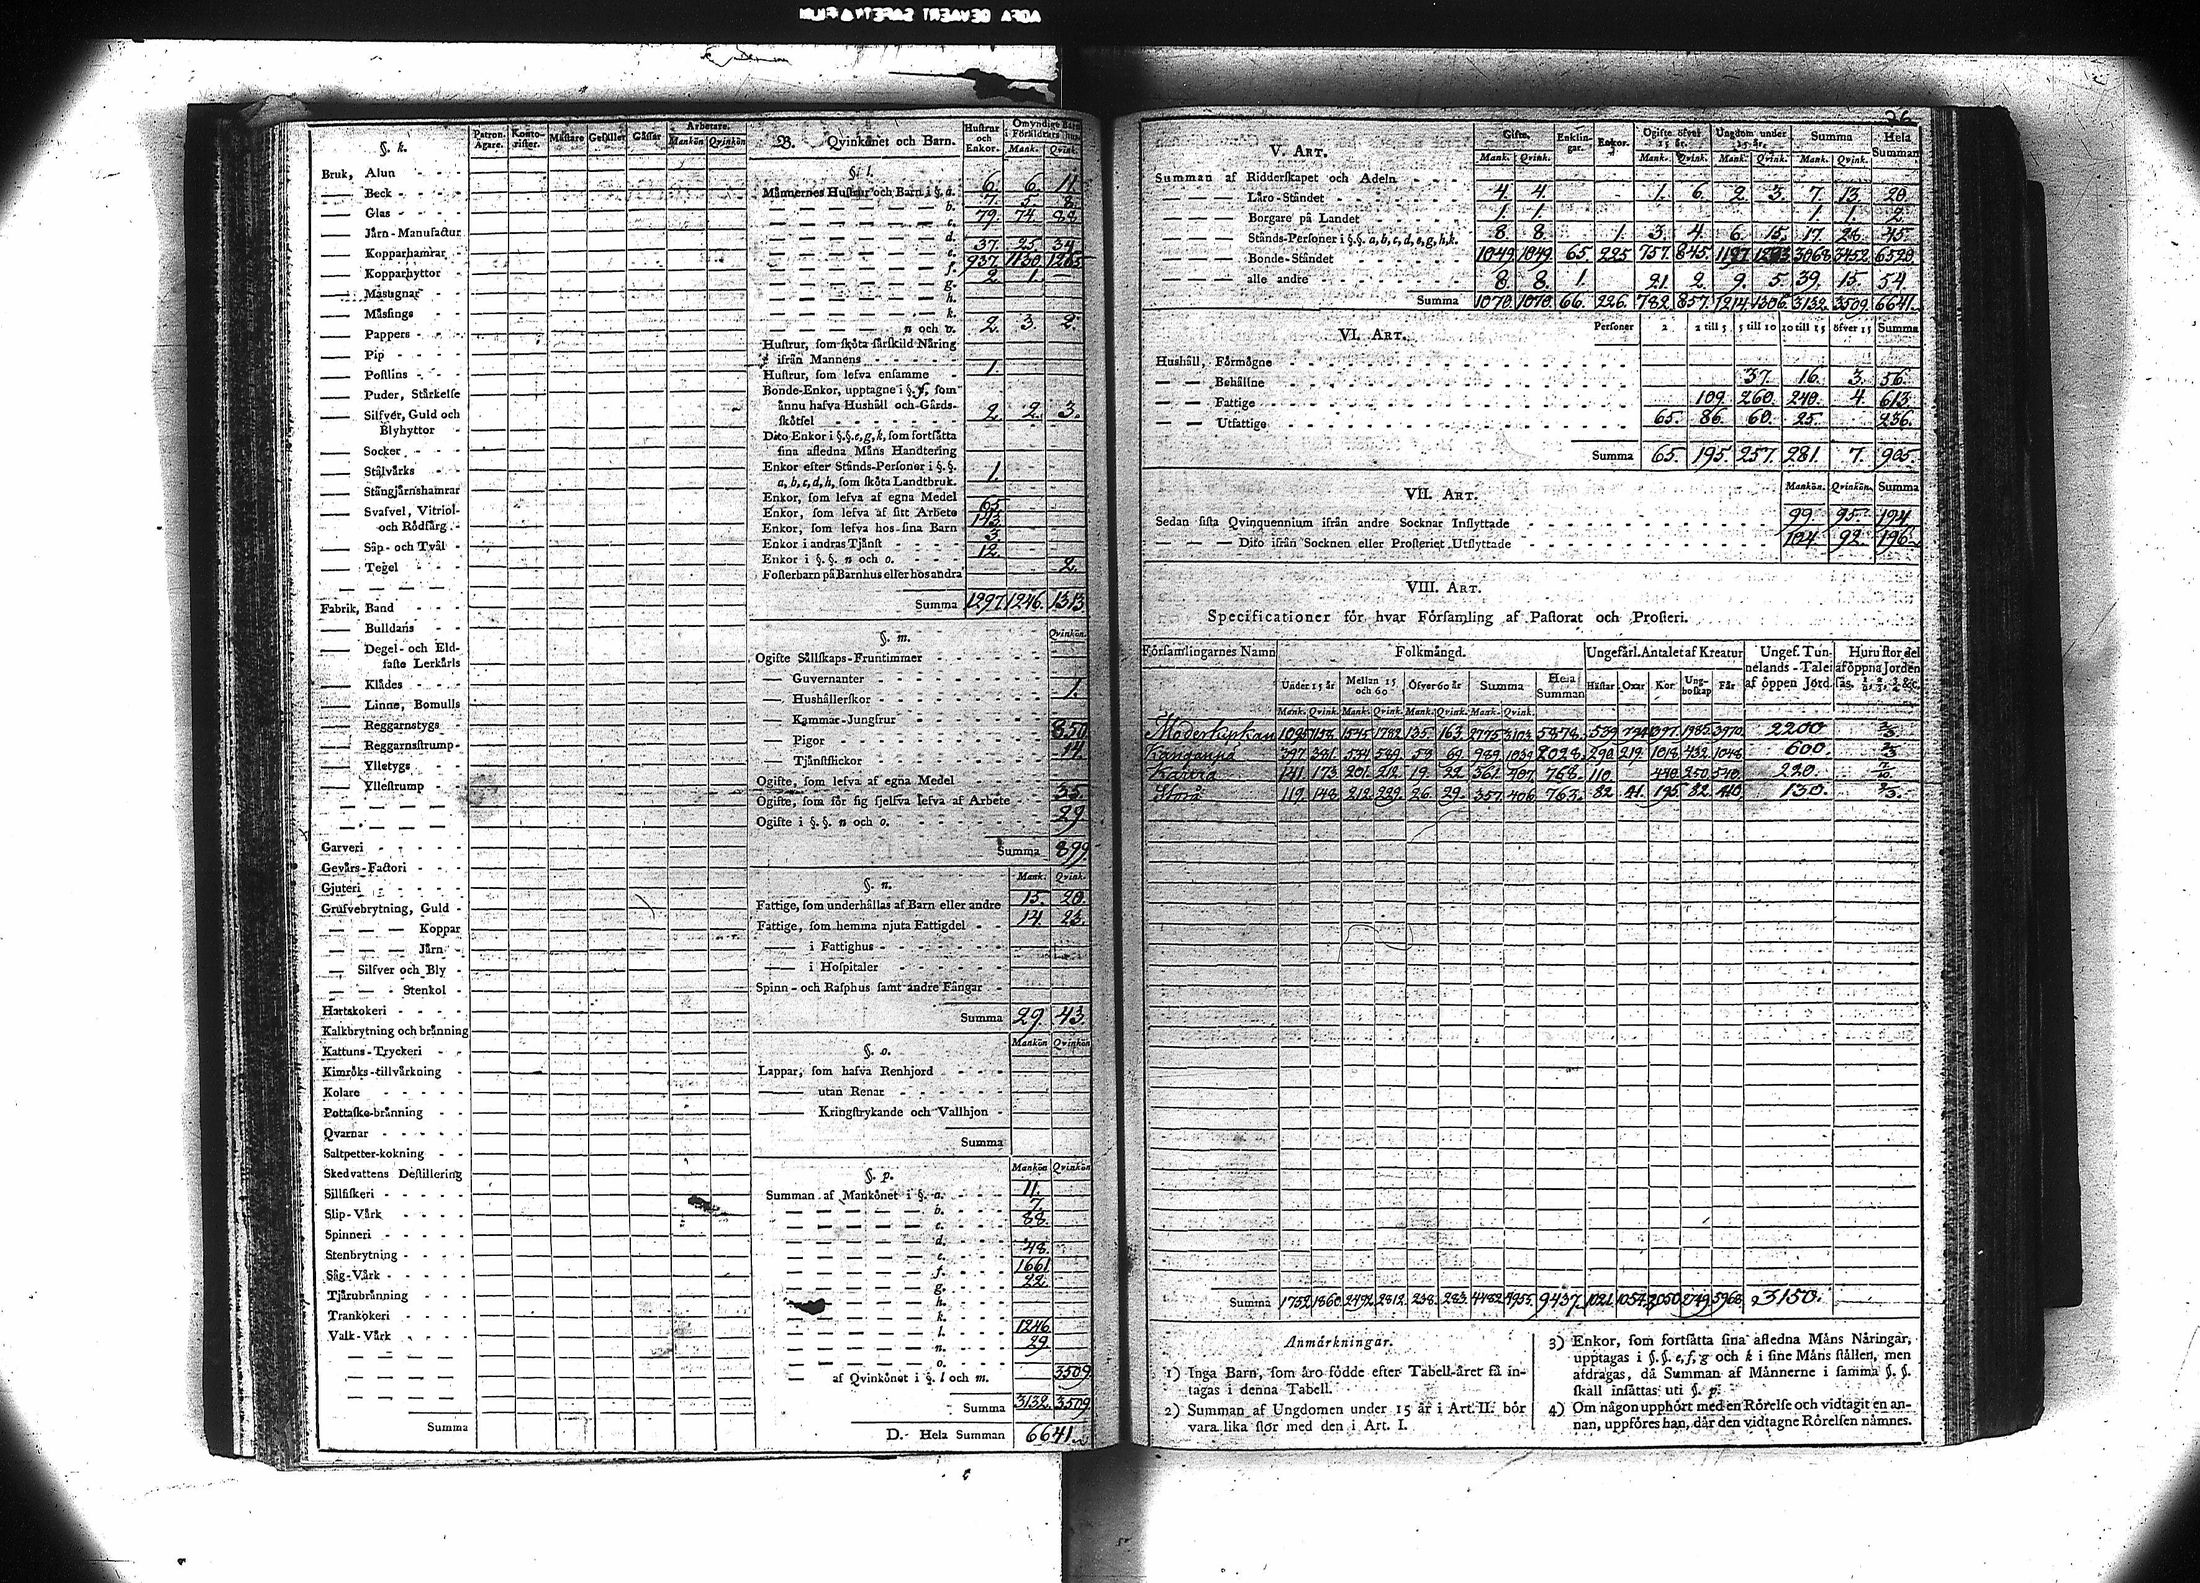 §. k.
Patron. Ägare. Konto-rister. Mästare Gesäller Gåssar Arbetare. Mankön Qvinkön
Bruk, Alun
Beck
Glas
Järn-Manufactur
Kopparhamrar
Kopparhyttor
Masugnar
Mässings
Pappers
Pip
Postlins
Puder, Stärkelse
Silfver, Guld och
Blyhyttor
Socker
Stålvärks
Stångjärnshamrar
Svafvel, Vitriol-
och Rödfärg
Såp- och Tvål
Tegel
Fabrik, Band
Bulldans
Degel- och Eld-
faste Lerkärls
Klädes
Linne, Bomulls
Reggarnstygs
Reggarnsstrump
Ylletygs
Yllestrump
Garveri
Gevärs-Factori
Gjuteri
Grufvebrytning, Guld
Koppar
Järn
Silfver och Bly
Stenkol
Hartskokeri
Kalkbrytning och bränning
Kattuns-Tryckeri
Kimröks-tillvärkning
Kolare
Pottaske-bränning
Qvarnar
Saltpetter-kokning
Skedvattens Destillering
Sillfiskeri
Slip-Värk
Spinneri
Stenbrytning
Såg-Värk
Tjärubränning
Trankokeri
Valk-Värk
Summa
B. Qvinkönet och Barn. Hustrur och Enkor. Mank. Qvink.
§. l.
Männernes Hustrur och Barn i §. a. 6. 6. 11.
b. 7. 5. 8.
c. 79. 74. 88.
d.
e. 37. 25. 34
f. 937. 1130. 1265
g. 2. 1.
h.
k.
n och o. 2. 3. 2.
Hustrur, som sköta särskild Näring
ifrån Mannens
Hustrur, som lefva ensamme 1.
Bonde-Enkor, uptagne i §. f, som
ännu hafva Hushåll och Gårds-
skötsel 2. 2. 3.
Dito Enkor i §.§. e, g, k, som fortsätta
sina afledna Mäns Handtering
Enkor efter Stånds-Personer i §.§.
a, b, c, d, h, som sköta Landtbruk. 1.
Enkor, som lefva af egna Medel
Enkor, som lefva af sitt Arbete 65.
Enkor, som lefva hos sina Barn
Enkor i andras Tjänst 3.
Enkor i §. §. n och o. 12.
Fosterbarn på Barnhus eller hos andra 2.
Summa 1297 1246. 1313
§. m. Qvinkön.
Ogifte Sällskaps-Fruntimmer
Guvernanter
Hushållerskor 1.
Kammar-Jungfrur
Pigor 850
Tjänstflickor 14.
Ogifte, som lefva af egna Medel
Ogifte, som för sig sjelfva lefva af Arbete 35.
Ogifte i §. §. n och o. 29
Summa 899.
§. n. Mank. Qvink.
Fattige, som underhållas af Barn eller andre 15. 20.
Fattige, som hemma njuta Fattigdel 14. 23.
i Fattighus
i Hospitaler
Spinn- och Rasphus samt andre Fångar
Summa 29. 43.
§. o. Mankön Qvinkön
Lappar, som hafva Renhjord
utan Renar
Kringstrykande och Vallhjon
Summa
§. p. Mankön Qvinkön
Summan af Mankönet i §. a. 11.
b. 7.
c. 88.
d.
e. 48.
f. 1661
g. 22.
h.
k.
l. 1246
n. 29.
o.
af Qvinkönet i §. l och m. 3509
Summa 3132. 3509
D. Hela Summan 6641.
26
V. Art. Gifte. Enklin-gar. Enkor. Ogifte öfver 15 år. Ungdom under 15 år. Summa Hela Summan
Mank. Qvink. Mank. Qvink. Mank. Qvink. Mank. Qvink.
Summan af Ridderskapet och Adeln
Läro-Ståndet 4. 4. 1. 6. 2. 3. 7. 13. 20.
Borgare på Landet 1. 1. 1. 1. 2.
Stånds-Personer i §.§. a, b, c, d, e, g, h, k. 8. 8. 1. 3. 4. 6. 15. 17. 28. 45.
Bonde-Ståndet 1049. 1049. 65. 225 757. 845. 3068 3452 6520
alle andre 8. 8. 1. 21. 2. 9. 5. 39. 15. 54.
Summa 1070. 1070. 66. 226. 782. 857. 1214. 1306. 3132. 3509. 6641.
VI. Art. Personer 2 2 till 5 5 till 10 10 till 15 öfver 15 Summa
Hushåll, Förmögne
Behållne 37. 16. 3. 56.
Fattige 109. 260. 240. 4. 613.
Utfattige 65. 86. 60. 25. 236.
Summa 65. 195. 257. 281. 7. 905.
VII. Art. Mankön. Qvinkön. Summa
Sedan sista Qvinquennium ifrån andre Socknar Inflyttade 99. 95. 194
Dito ifrån Socknen eller Prosteriet Utflyttade 104. 92. 196
VIII. Art.
Specificationer för hvar Församling af Pastorat och Prosteri.
Församlingarnes Namn Folkmängd. Ungefärl. Antalet af Kreatur Ungef. Tun-nelands-Talet af öppen Jord. Huru stor del af öppna Jorden
Under 15 år Mellan 15 och 60 Öfver 60 år Summa Hela Summan Hästar Oxar Kor Ung-boskap Får
Mank. Qvink. Mank. Qvink. Mank. Qvink. Mank. Qvink.
Moderkyrkan 1095 1158. 1545. 1782 135. 163. 2775 3103. 5878. 539 794 1397. 1985. 3970. 2200
397. 381. 534. 589. 58 69. 989. 1039 2028. 290. 219. 1018. 432. 1048 600.
141. 173. 201. 212. 19. 22. 361. 407. 768. 110. 440. 250. 540. 220.
119. 148 212. 229. 26. 29. 357. 406 763. 82. 41. 195. 82. 410. 130.
Summa 1752. 1860. 2492. 2812. 238. 283. 4482. 4955. 9437. 1021. 1054. 3050. 2749. 5968. 3150.
Anmärkningar.
1) Inga Barn, som äro födde efter Tabell-året få in-
tagas i denna Tabell.
2) Summan af Ungdomen under 15 år i Art. II. bör
vara lika stor med den i Art. I.
3) Enkor, som fortsätta sina afledna Mäns Näringar,
upptagas i §. §. e, f, g och k i sine Mäns ställen, men
afdragas, då Summan af Männerne i samma §. §.
skall insättas uti §. p.
4) Om någon upphört med en Rörelse och vidtagit en an-
nan, uppföres han, där den vidtagne Rörelsen nämnes.